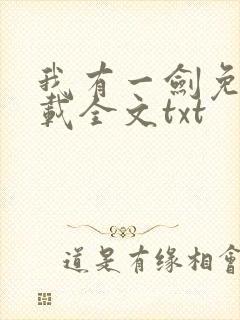 我有一劍免
載全文txt
道是有缘相會